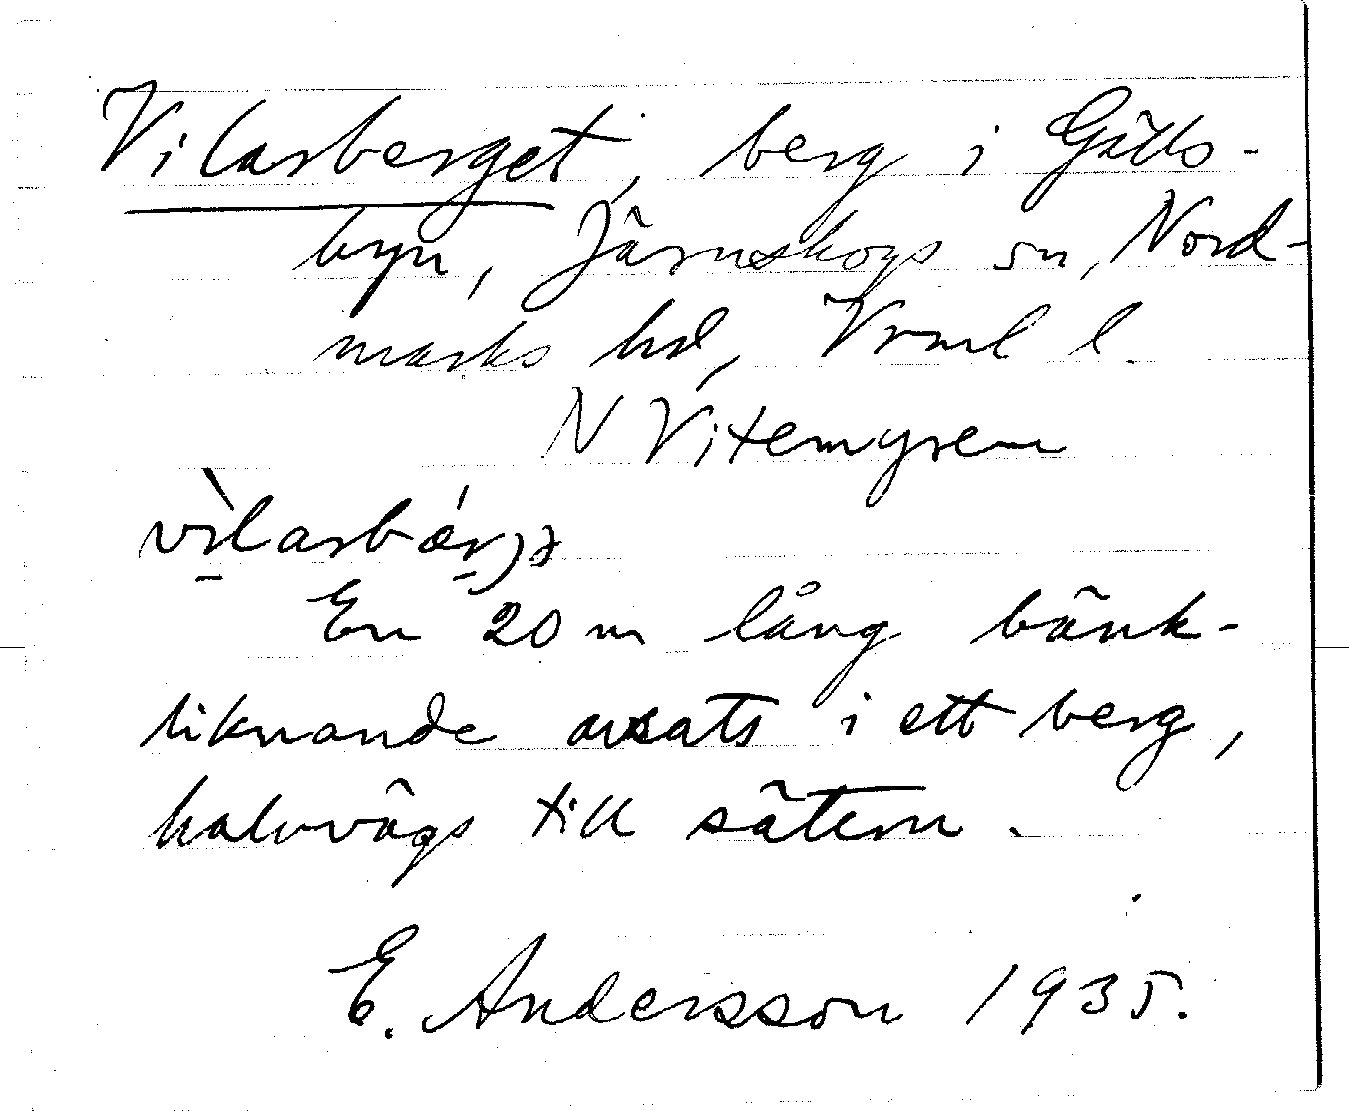 Vilarberget, berg i Gälls-
byn, Järnskogs sn, Nord-
marks hd, Vrml l.
N Vitemyren
En 20 m lång bänk-
liknande avsats i ett berg,
halvvägs till sätern.
E. Andersson 1935.